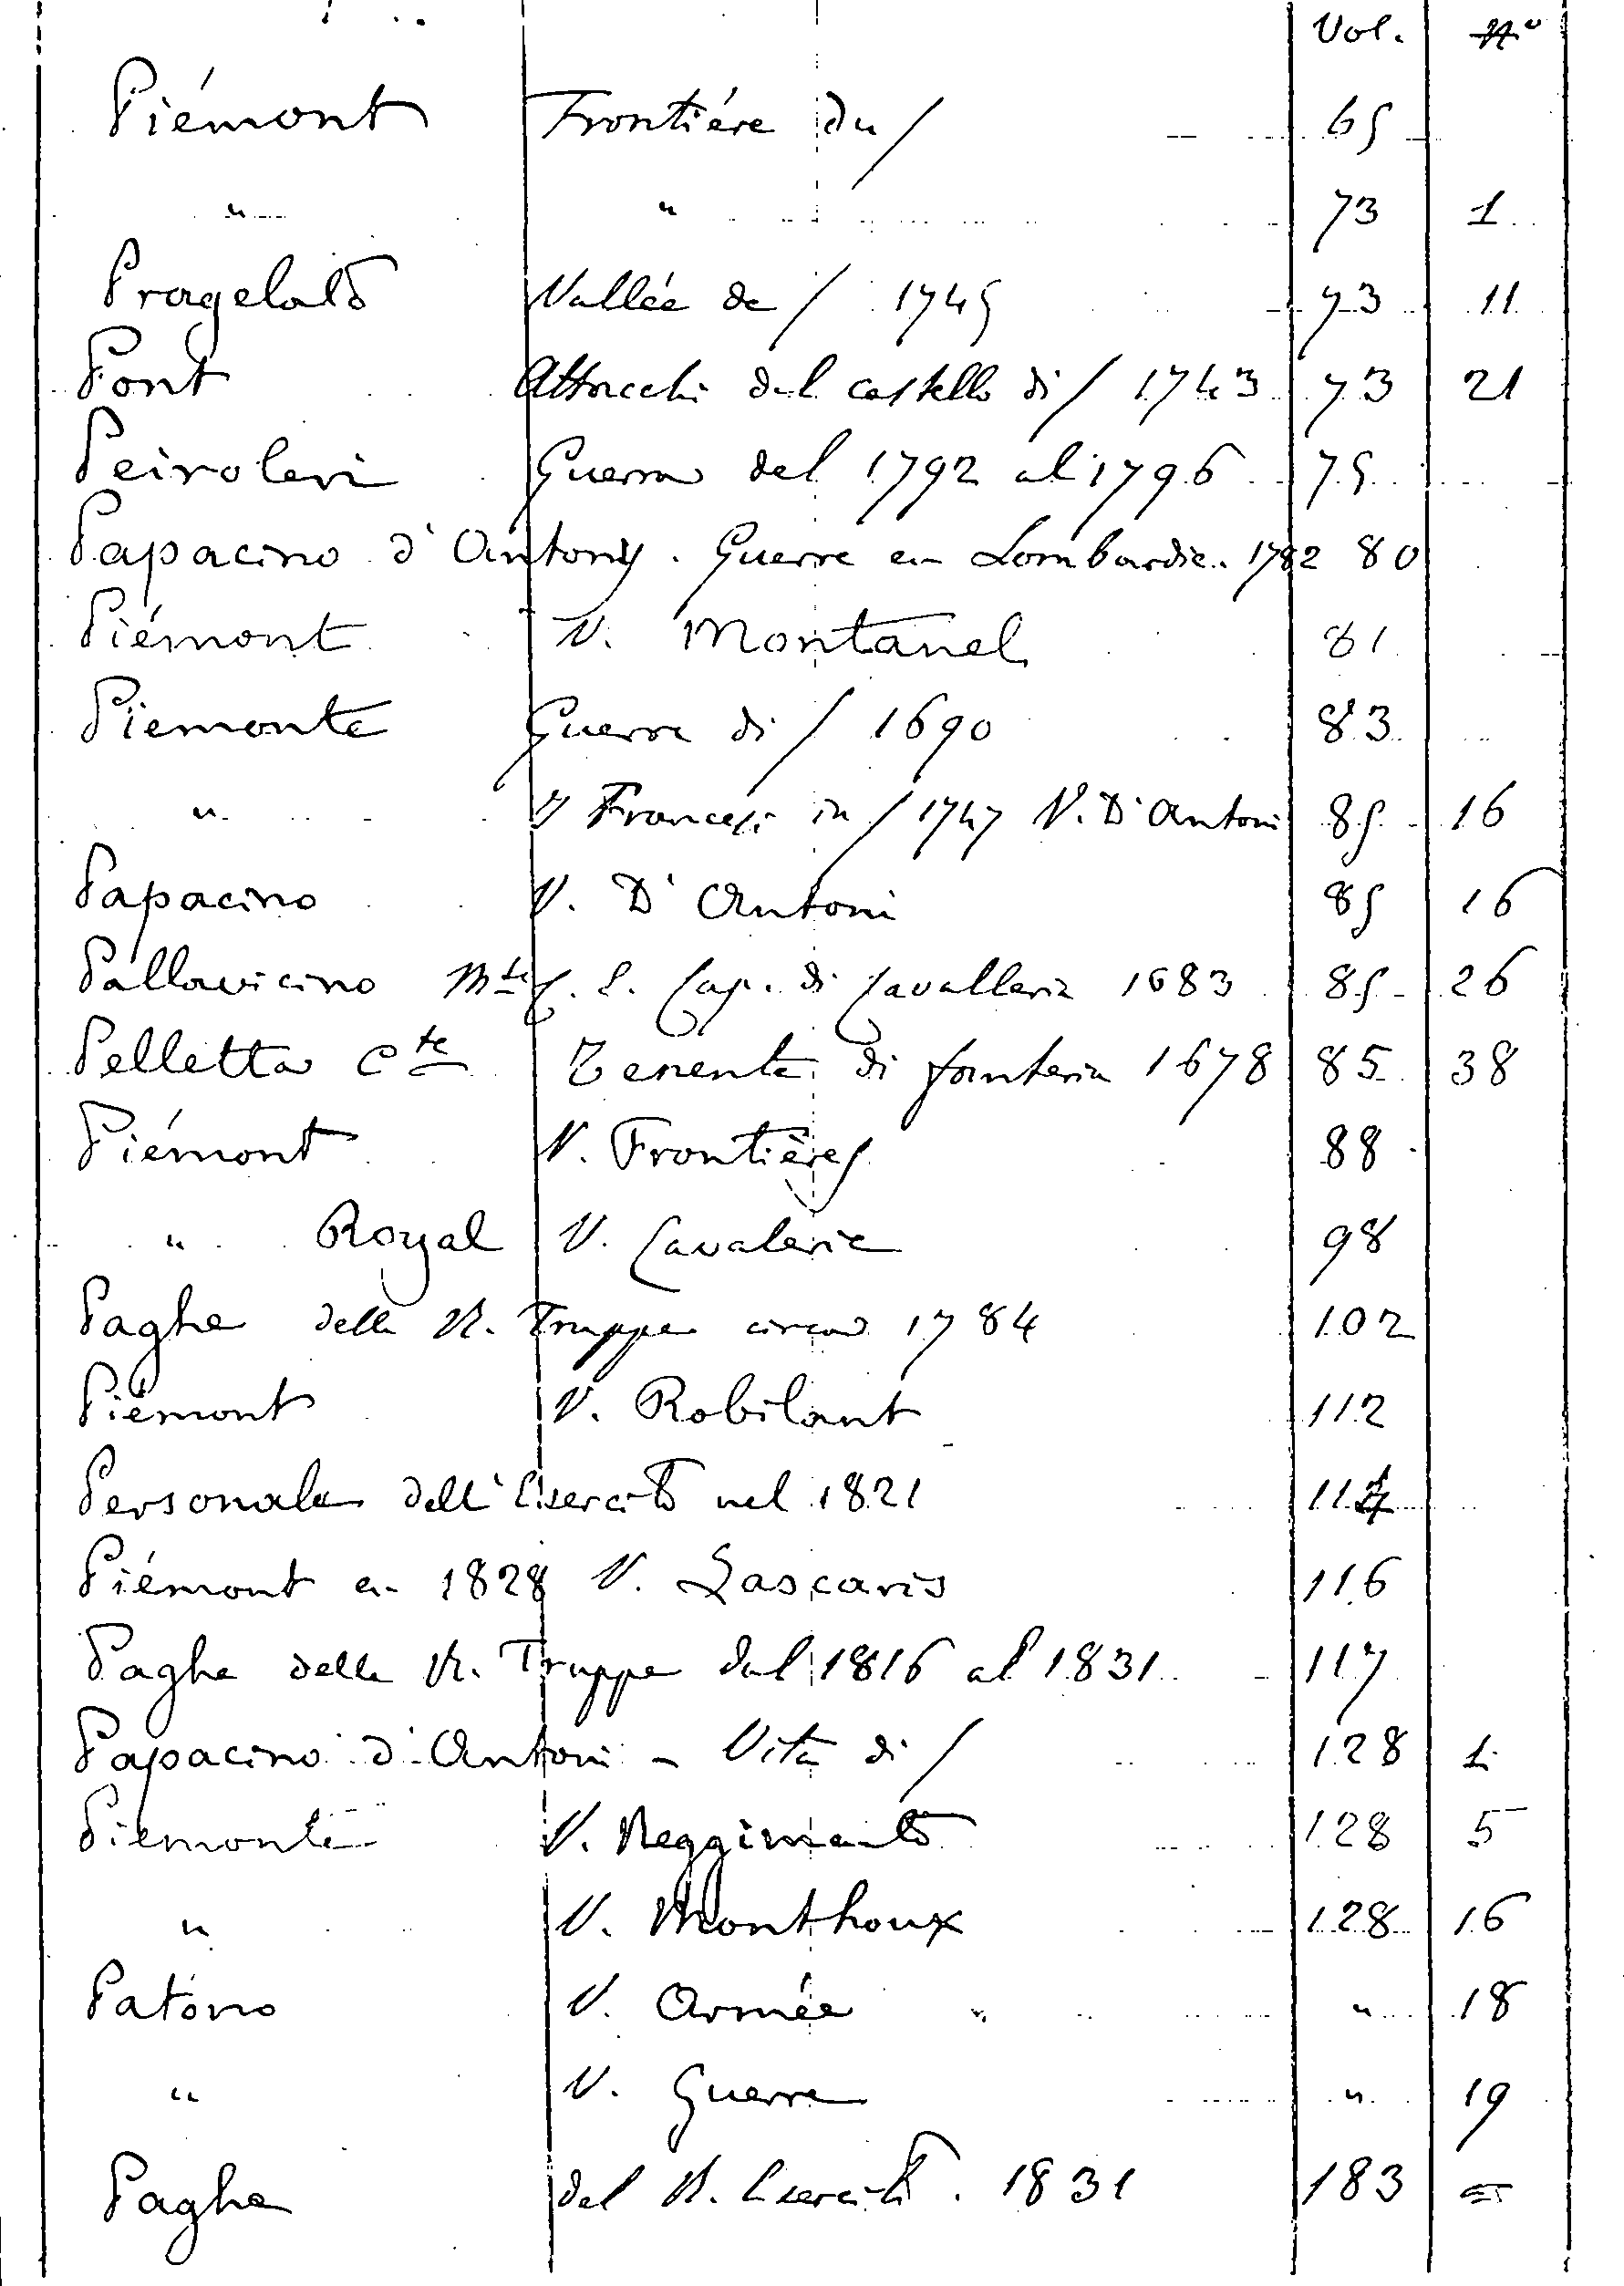 Vol. N°
Piémont Frontiére du / 65
" " 73 1
Pragelato Vallée de / 1745 73 11
Pont Attacchi del castello di / 1743 73 21
Peiroleri Guerra del 1792 al 1796 75
Papacino d'Antonij. Guerre en Lombardie. 1782 80
Piémont V. Montanel 81
Piemonte Guerre di / 1690 83
" I Francesi in / 1747 V. D'Antoni 85 16
Papacino V. D'Antoni 85 16
Pallavicino Cap. di Cavalleria 1683 85 26
Pelletta Cte Tenente di fanteria 1678 85 38
Piémont V. Frontières 88
" Royal V. Cavalerie 98
Paghe delle R. Truppe circa 1784 102
Piémont V. Robilant 112
Personale dell'Esercito nel 1821 114
Piémont en 1828 V. Lascaris 116
Paghe delle R. Truppe dal 1816 al 1831 117
Papacino d'Antoni - Vita di / 128 1
Piemonte V. Reggimento 128 5
" V. Monthoux 128 16
Patono V. Armée " 18
" V. Guerre " 19
Paghe del R. Esercito. 1831 183